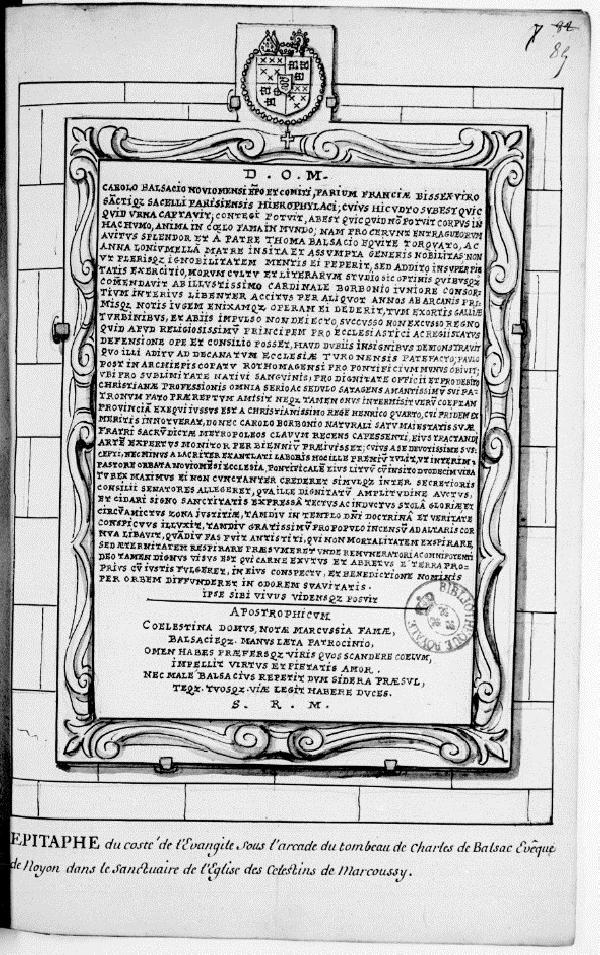 7 82
85
D . O . M .
CAROLO BALSACIO NOVIOMENSI EPO ET COMITI, PARIUM FRANCIÆ BISSEXVIRO
SACTIQZ SACELLI PARISIENSIS HIEROPHYLACI; CVIVS HIC VDYO SVBEST QVIC
QVID VRNA CAPTAVIT, CONTEGI POTVIT, ABEST QVICQVID NO POTVIT CORPVS IN
HAC HVMO, ANIMA IN COELO FAMA IN MVNDO; NAM PROCERVM ENTRAGVEORVM
AVITVS SPLENDOR ET A PATRE THOMA BALSACIO EQVITE TORQVATO, AC
ANNA LONIVMELLA MATRE INSITA ET ASSVMPTA GENERIS NOBILITAS NON
VT PLERISQZ IGNOBILITATEM MENTIS EI PEPERIT, SED ADDITO INSVPER PIE
TATIS EXERCITIO, MORVM CVLTV ET LITERARVM STVDIO SIC OPTIMIS QVIBVSQZ
COMENDAVIT AB ILLVSTISSIMO CARDINALE BORBONIO IVNIORE CONSOR
TIVM INTERIVS LIBENTER ACCITVS PER ALIQVOT ANNOS AB ARCANIS PRI
MISQZ NOTIS IVGEM ENIXAMQZ OPERAM EI DEDERIT, TVM EXORTIS GALLIÆ
TVRBINIBVS, ET ABIIS IMPVLSO NON DEIECTO, SVCCVSSO NON EXCVSSO REGNO
QVID APVD RELIGIOSISSIMV PRINCIPEM PRO ECCLESIASTICI AC REGII STATVS
DEFENSIONE OPE ET CONSILIO POSSET, HAVD DVBIIS INSIGNIBVS DEMONSTRAVIT
QVO ILLI ADITV AD DECANATVM ECCLESIÆ TVRONENSIS PATEFACTO; PAVLO
POST IN ARCHIEPISCOPATV ROTHOMAGENSI PRO PONTIFICIVM MVNVS OBIVIT;
VBI PRO SVBLIMITATE NATIVI SANGVINIS; PRO DIGNITATE OFFICII ET PRO DEBITO
CHRISTIANÆ PROFESSIONIS OMNIA SERIO AC SEDVLO SATAGENS AMANTISSIMV SVI PA
TRONVM FATO PRÆREPTVM AMISIT NEQZ TAMEN ONVS INTERMISIT VERV COEPTAM
PROVINCIA EXEQVI IVSSVS EST A CHRISTIANISSIMO REGE HENRICO QVARTO, CVI PRIDEM EX
MERITIS INNOTVERAT, DONEC CAROLO BORBONIO NATVRALI SATV MAIESTATIS SVÆ
FRATRI SACRVDICTÆ METROPOLEOS CLAVVM RECENS CAPESSENTI, EIVS TRACTANDI
ARTE EXPERTVS MONITOR PER BIENNIV PRÆIVISSET; CVIVS A SE DEVOTISSIME SVS
CEPTI, NEC MINVS ALACRITER EXANTLATI LABORIS HOC ILLE PREMIV TVLIT, VT INTERIM
PASTORE ORBATA NOVIOMESI ECCLESIA, PONTIFICALE EIVS LITVV
TVBEX MAXIMVS EI NON CVNCTANTER CREDERET SIMVLQZ INTER SECRETIORIS
CONSILII SENATORES ALLEGERET, QVA ILLE DIGNITATV AMPLITVDINE AVCTVS,
ET CIDARI SIGNO SANCTITATIS EXPRESSA TECTVS AC INDVCTVS STOLA GLORIÆ ET
CIRCVAMICTVS ZONA JVSTITIÆ, TAMDIV IN TEMPLO DNI DOCTRINA ET VERITATE
CONSPICVVS ILLVXIT, TAMDIV GRATISSIMV PRO POPVLO INCENSV AD ALTARIS COR
NVA LIBAVIT, QVADIV FAS FVIT ANTISTITI, QVI NON MORTALITATEM EXSPIRARE,
SED ÆTERNITATEM RESPIRARE PRÆSVMERET VNDE REMVNERATORI AC OMNIPOTENTI
DEO TAMEN DIGNVS VISVS EST QVI CARNE EXVTVS ET ABREPTVS E TERRA PRO-
PRIVS CV IVSTIS FVLGERET, IN EIVS CONSPECTV, ET BENEDICTIONE NOMINIS
PER ORBEM DIFFVNDERET IN ODOREM SVAVITATIS.
IPSE SIBI VIVVS VIDENSQZ POSVIT
APOSTROPHICVM
COELESTINA DOMVS, NOTÆ MARCVSSIA FAMÆ,
BALSACIEQZ. MANVS LÆTA PATROCINIO,
OMEN HABES PRÆFERSQZ VIRIS QVOS SCANDERE COELVM,
IMPELLIT VIRTVS ET PIETATIS AMOR.
NEC MALE BALSACIVS REPETIT DVM SIDERA PRÆSVL,
TEQZ. TVOSQZ. VIÆ LEGIT HABERE DVCES.
S . R . M .
BIBLIOTHEQUE ROYALE
EPITAPHE du costé de l'Evangile sous l'arcade du tombeau de Charles de Balsac Evêque
de Noyon dans le sanctuaire de l'Eglise des Celestins de Marcoussy.